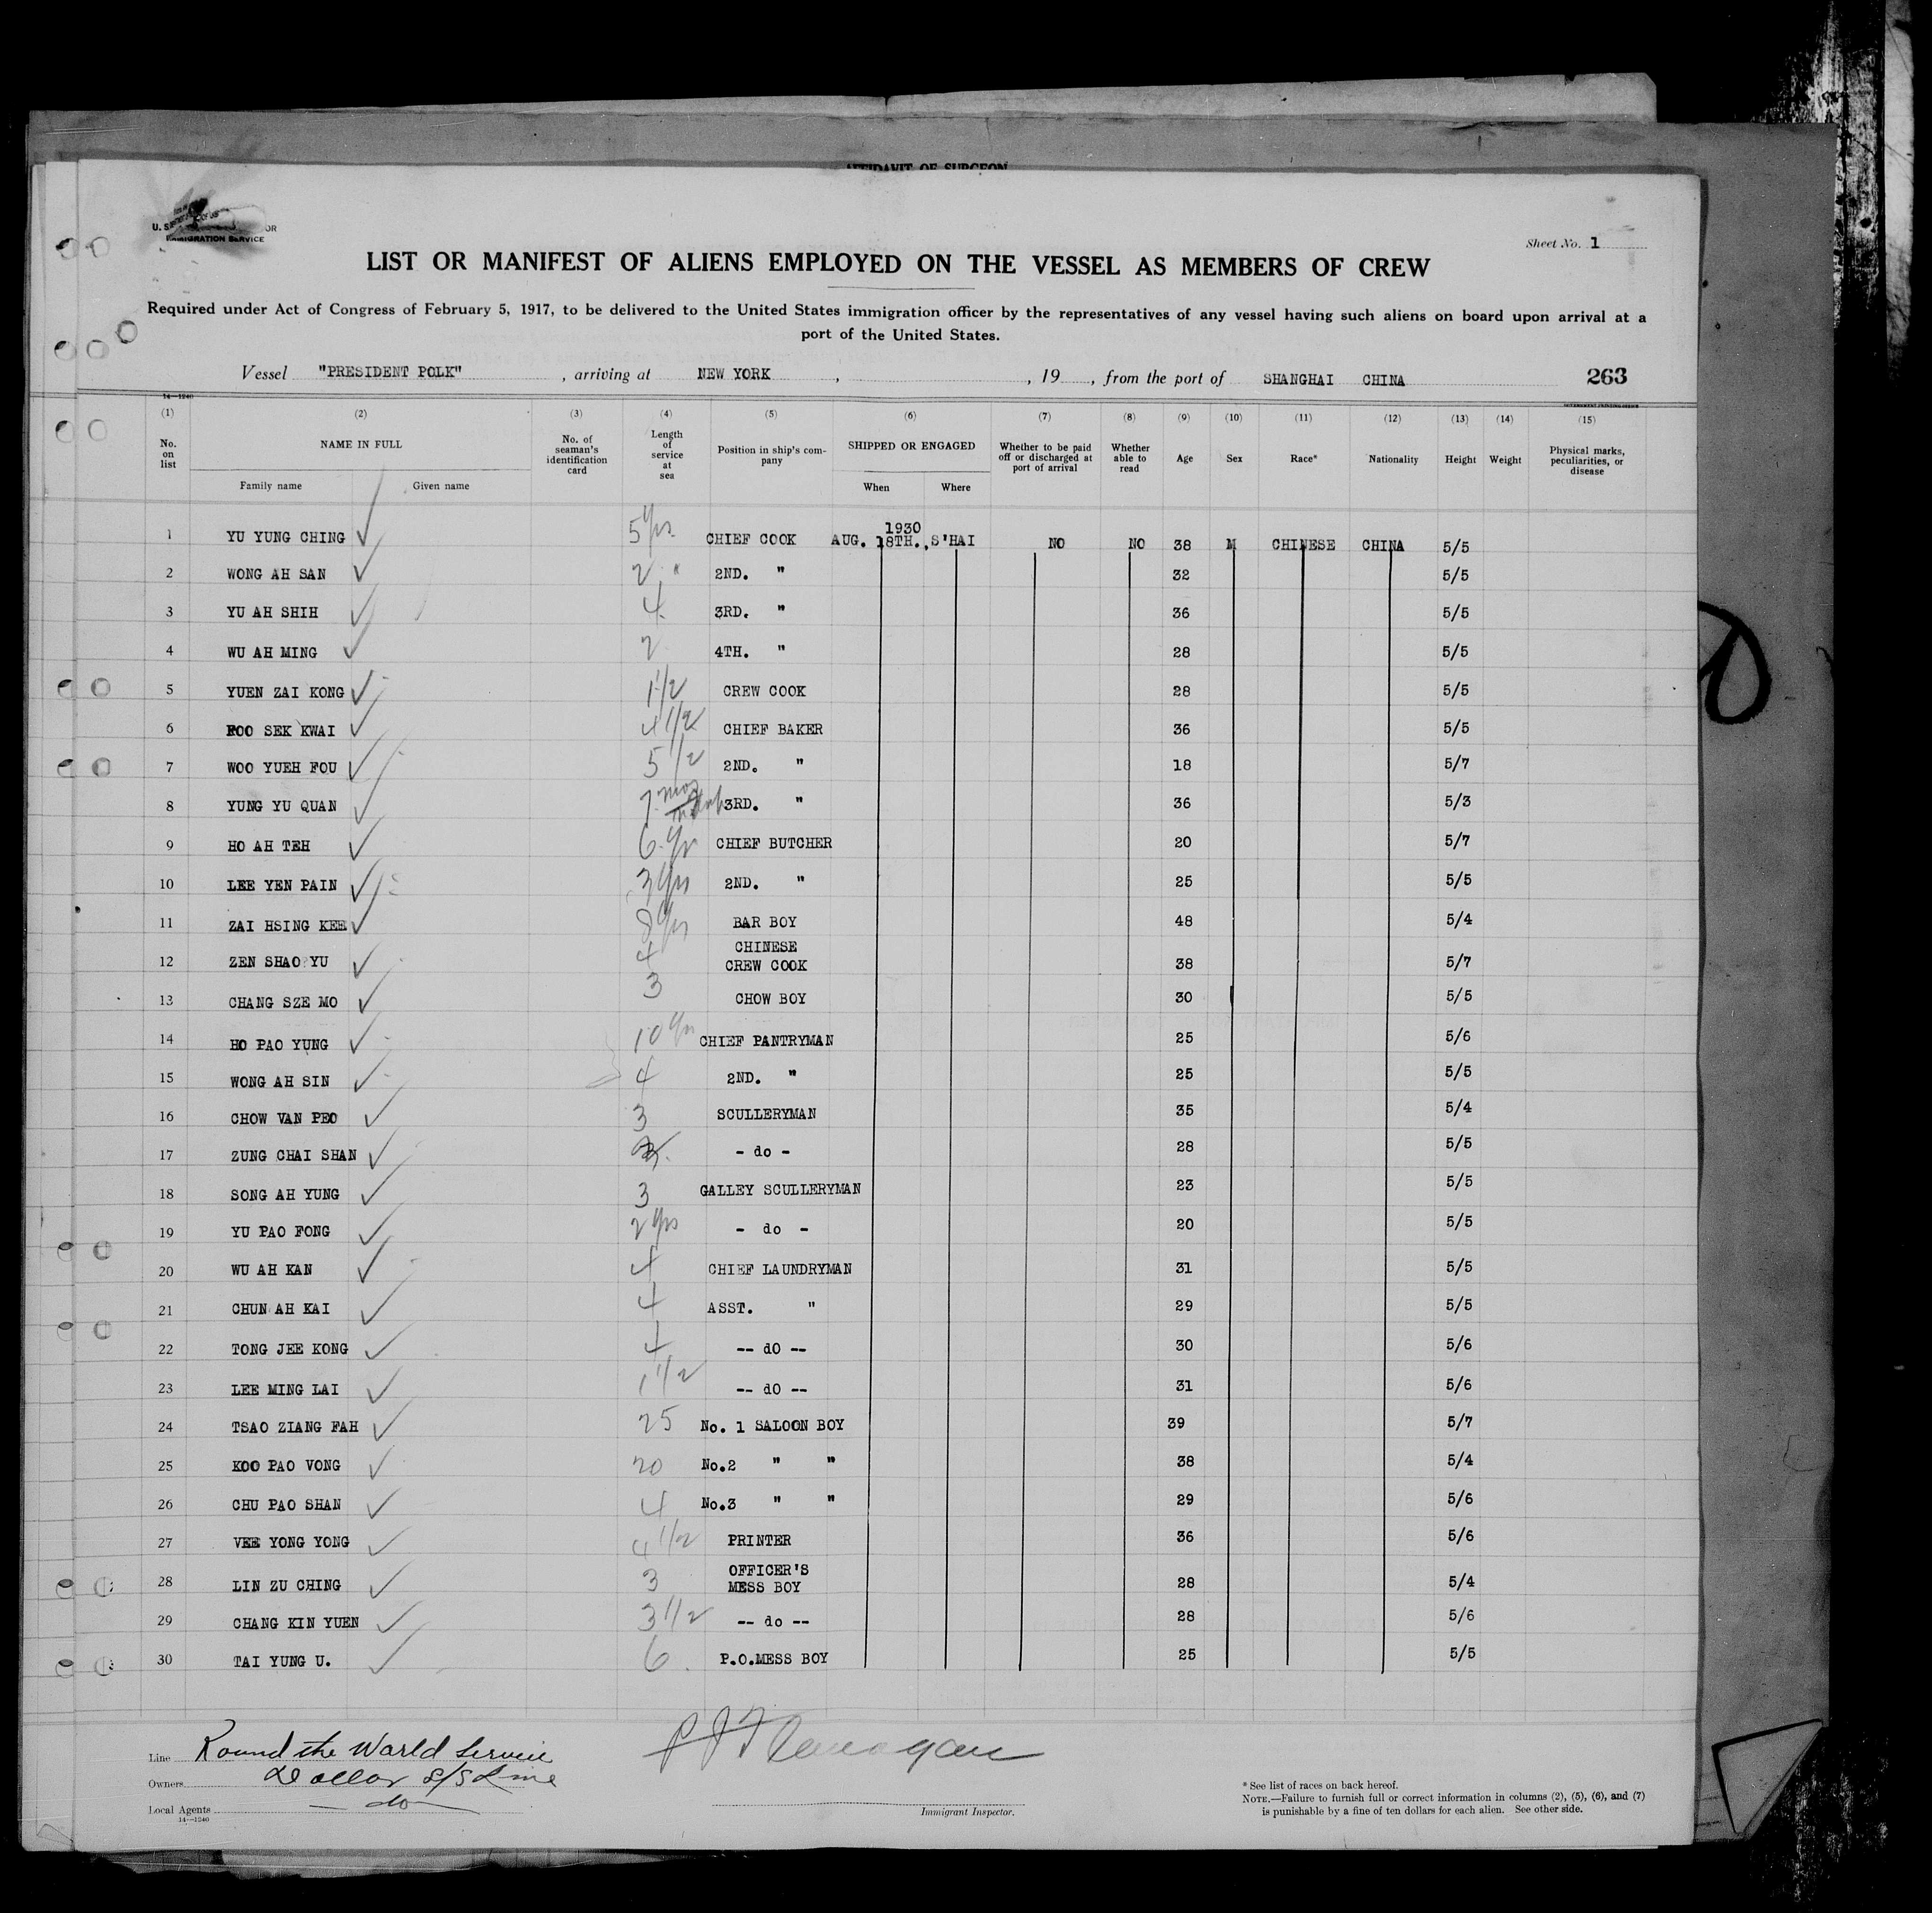 AFFIDAVIT OF SURGEON
IMMIGRATION SERVICE
Sheet No. 1
LIST OR MANIFEST OF ALIENS EMPLOYED ON THE VESSEL AS MEMBERS OF CREW
Required under Act of Congress of February 5, 1917, to be delivered to the United States immigration officer by the representatives of any vessel having such aliens on board upon arrival at a
port of the United States.
Vessel "PRESIDENT POLK", arriving at NEW YORK, , 19 , from the port of SHANGHAI CHINA 263
14—1240 GOVERNMENT PRINTING OFFICE
(1) (2) (3) (4) (5) (6) (7) (8) (9) (10) (11) (12) (13) (14) (15)
No. on list NAME IN FULL No. of seaman's identification card Length of service at sea Position in ship's company SHIPPED OR ENGAGED Whether to be paid off or discharged at port of arrival Whether able to read Age Sex Race* Nationality Height Weight Physical marks, peculiarities, or disease
Family name Given name When Where
1 YU YUNG CHING 5 yrs CHIEF COOK 1930 AUG. 18TH., S'HAI NO NO 38 M CHINESE CHINA 5/5
2 WONG AH SAN 2 " 2ND. " 32 5/5
3 YU AH SHIH 4 3RD. " 36 5/5
4 WU AH MING 2 4TH. " 28 5/5
5 YUEN ZAI KONG 1 1/2 CREW COOK 28 5/5
6 FOO SEK KWAI 4 1/2 CHIEF BAKER 36 5/5
7 WOO YUEH FOU 5 1/2 2ND. " 18 5/7
8 YUNG YU QUAN 7 mos 3RD. " 36 5/3
9 HO AH TEH 6 yr CHIEF BUTCHER 20 5/7
10 LEE YEN PAIN 3 yrs 2ND. " 25 5/5
11 ZAI HSING KEE 8 yrs BAR BOY 48 5/4
12 ZEN SHAO YU 4 CHINESE CREW COOK 38 5/7
13 CHANG SZE MO 3 CHOW BOY 30 5/5
14 HO PAO YUNG 10 yrs CHIEF PANTRYMAN 25 5/6
15 WONG AH SIN 4 2ND. " 25 5/5
16 CHOW VAN PEO 3 SCULLERYMAN 35 5/4
17 ZUNG CHAI SHAN - do - 28 5/5
18 SONG AH YUNG 3 GALLEY SCULLERYMAN 23 5/5
19 YU PAO FONG 2 yrs - do - 20 5/5
20 WU AH KAN 4 CHIEF LAUNDRYMAN 31 5/5
21 CHUN AH KAI 4 ASST. " 29 5/5
22 TONG JEE KONG 4 -- dO -- 30 5/6
23 LEE MING LAI 1 1/2 -- dO -- 31 5/6
24 TSAO ZIANG FAH 25 No. 1 SALOON BOY 39 5/7
25 KOO PAO VONG 20 No.2 " " 38 5/4
26 CHU PAO SHAN 4 No.3 " " 29 5/6
27 VEE YONG YONG 4 1/2 PRINTER 36 5/6
28 LIN ZU CHING 3 OFFICER'S MESS BOY 28 5/4
29 CHANG KIN YUEN 3 1/2 -- do -- 28 5/6
30 TAI YUNG U. 6 P.O.MESS BOY 25 5/5
Line Round the World Service
Owners Dollar S/S Line
Local Agents — do —
14—1240
Immigrant Inspector.
* See list of races on back hereof.
NOTE.—Failure to furnish full or correct information in columns (2), (5), (6), and (7)
is punishable by a fine of ten dollars for each alien. See other side.